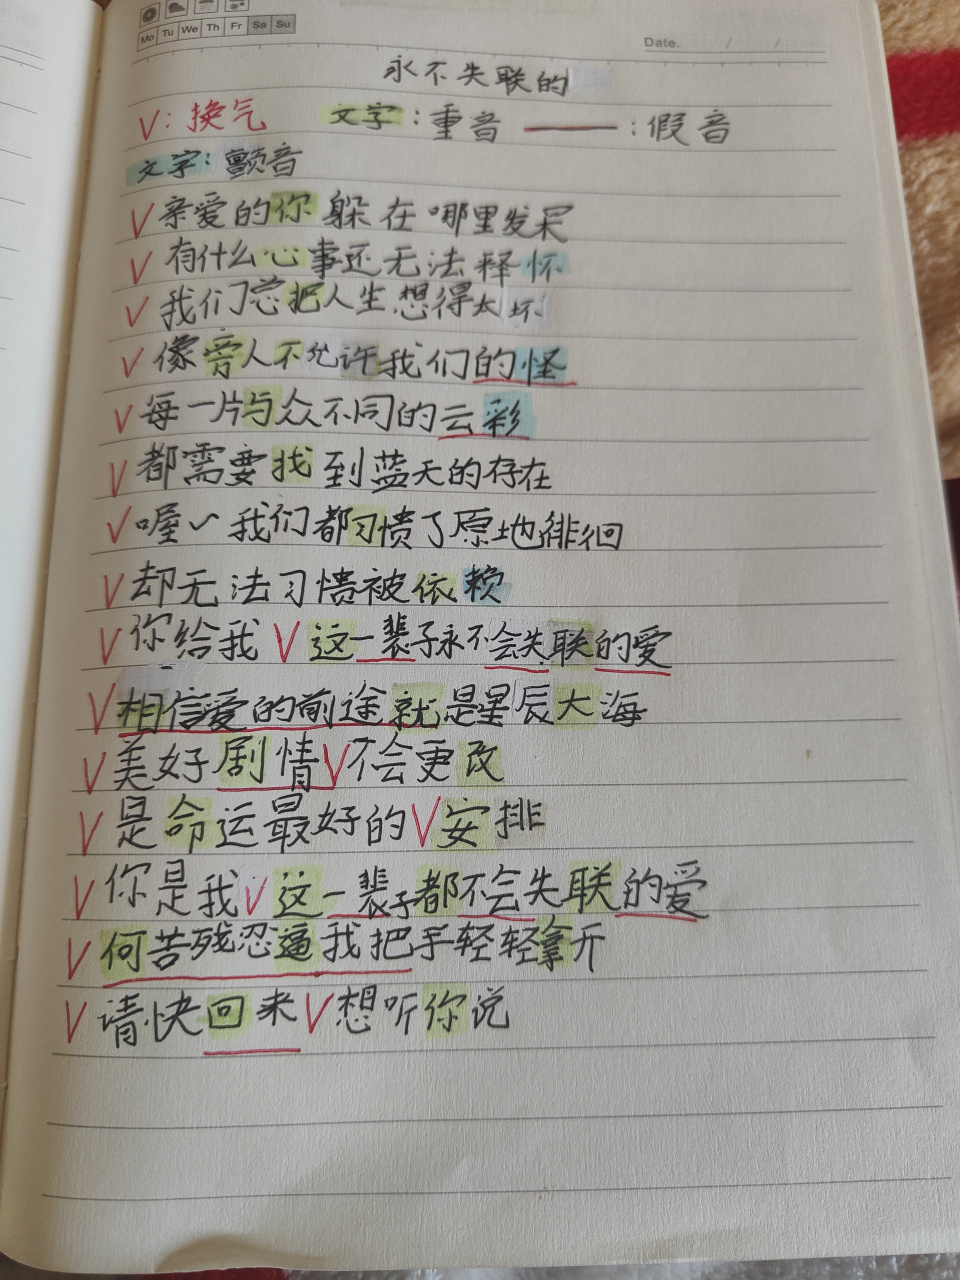 Mo Tu We Th Fr Sa Su
Date. / /
永不失联的
V：换气 文字：重音 ——：假音
文字：颤音
V亲爱的你躲在哪里发呆
V有什么心事还无法释怀
V我们总把人生想得太坏
V像旁人不允许我们的怪
V每一片与众不同的云彩
V都需要找到蓝天的存在
V喔～我们都习惯了原地徘徊
V却无法习惯被依赖
V你给我V这一裴子永不会失联的爱
V相信爱的前途就是星辰大海
V美好剧情V不会更改
V是命运最好的V安排
V你是我V这一裴子都不会失联的爱
V何苦残忍逼我把手轻轻拿开
V请快回来V想听你说